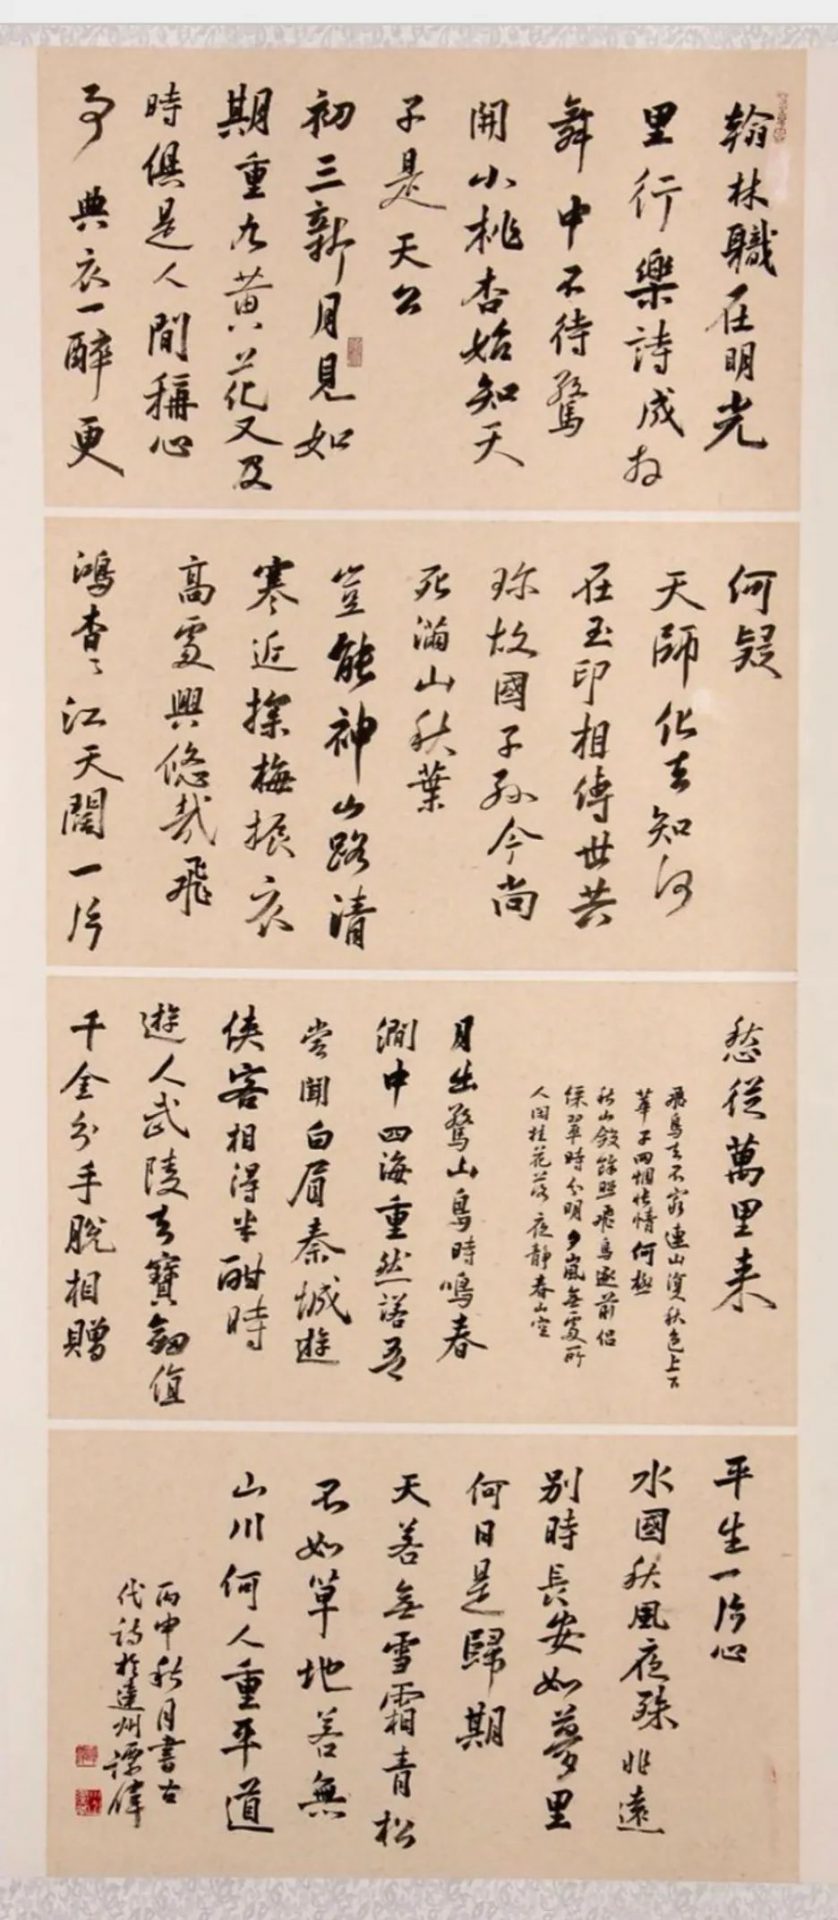 翰林職在明光
里行樂詩成拜
舞中不待驚
開小桃杏始知天
子是天公
初三新月見如
期重九黃花又及
時俱是人間稱心
事典衣一醉更
何疑
天師化去知何
在玉印相傳世共
珍故國子孫今尚
死滿山秋葉
豈能神山路清
寒近探梅振衣
高處興悠哉飛
鴻杳〻江天闊一片
愁從萬里来
飛鳥去不窮連山復秋色上下
華子岡惆悵情何極
秋山斂餘照飛鳥逐前侶
綵翠時分明夕嵐無處所
人閑桂花落夜靜春山空
月出驚山鳥時鳴春
澗中四海重然諾吾
嘗聞白眉秦城遊
俠客相得半酣時
遊人武陵去寶劍值
千金分手脫相贈
平生一片心
水國秋風夜殊非遠
別時長安如夢里
何日是歸期
天若無雪霜青松
不如草地若無
山川何人重平道
丙申秋月書古
代詩於達州譚偉